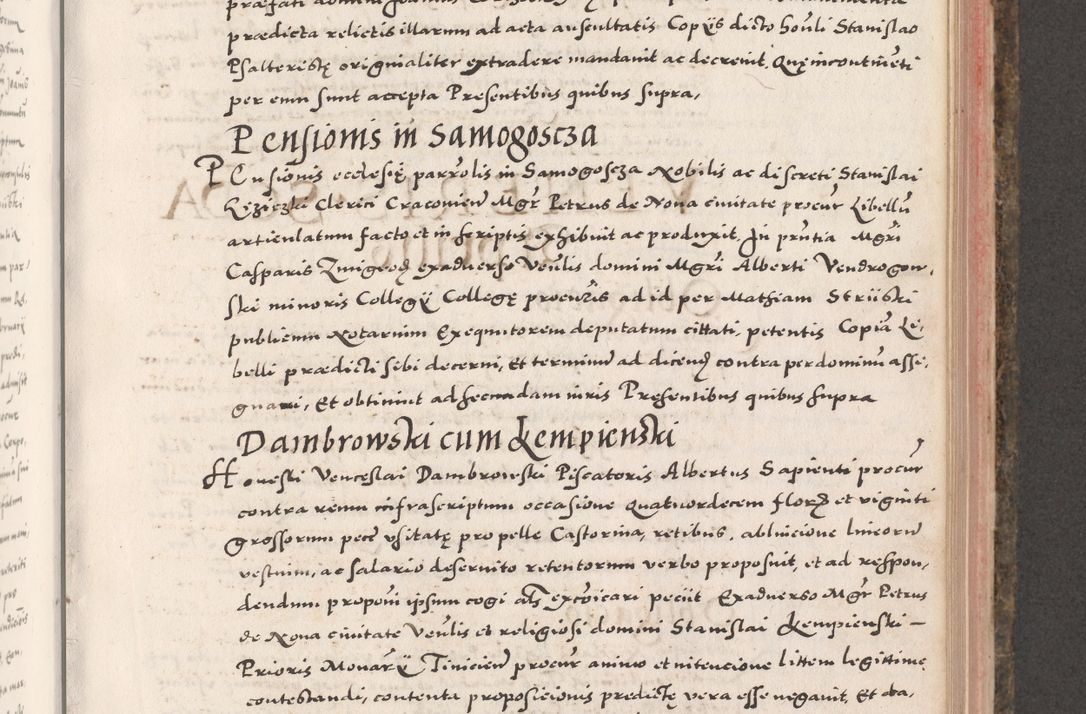 prædicta relictis illarum ad acta auscultatis Copijs dicto honli Stanislao
Psalteristę originaliter extradere mandauit ac decreuit. Quę incontinenti
per eum sunt accepta Presentibus quibus supra.
Pensionis in Samogoscza
Pensionis ecclesię parrolis in Samogoscza Nobilis ac discreti Stanislai
Clerici Cracovien Mgr Petrus de Noua ciuitate procur Libellu
articulatum facto et in scriptis exhibuit ac produxit. In pntia Mgri
Casparis exaduerso Venlis domini Mgri Alberti Vendrogow,
ski minoris Collegij Collegę procuris ad id per Mathiam Striiski
publicum Notarium Exequutorem deputatum cittati, petentis Copia Li,
belli prædicti sibi decerni, Et terminu ad dicend contra per dominu asse,
gnari, Et obtinuit ad secundam iuris Presentibus quibus supra
Dambrowski cum Kempienski
Honesti Venceslai Dambrowski Piscatoris Albertus Sapienti procur
contra reum infrascriptum occasione Quatuordecem flor et viginti
grossorum pecē vsitatę pro pelle Castorina, retibus, abluicione lineoru
vestium, ac salario deseruito retentorum verbo proposuit, et ad respon,
dendum proponi ipsum cogi als excoicari peciit Exaduerso Mgr Petrus
de Noua ciuitate Venlis et religiosi domini Stanislai Kempienski –
Prioris Monarij Tinicien procur animo et intencione littem legittime
contestandi, contenta proposicionis predictę vera esse negauit, Et